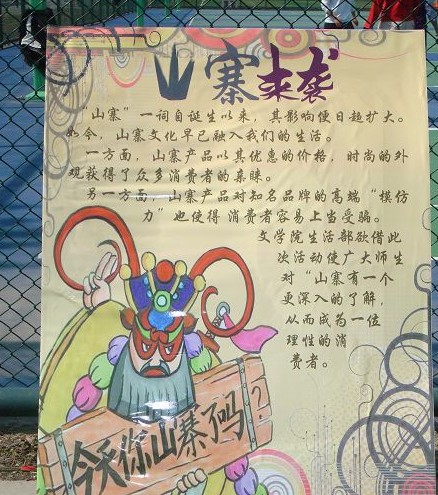 山寨来袭
“山寨”一词自诞生以来，其影响便日趋扩大。
如今，山寨文化早已融入我们的生活。
一方面，山寨产品以其优惠的价格，时尚的外
观获得了众多消费者的亲睐。
另一方面，山寨产品对知名品牌的高端“模仿
力”也使得 消费者容易上当受骗。
文学院生活部欲借此
次活动使广大师生
对“山寨有一个
更深入的了解，
从而成为一位
理性的消
费者。
今天你山寨了吗？